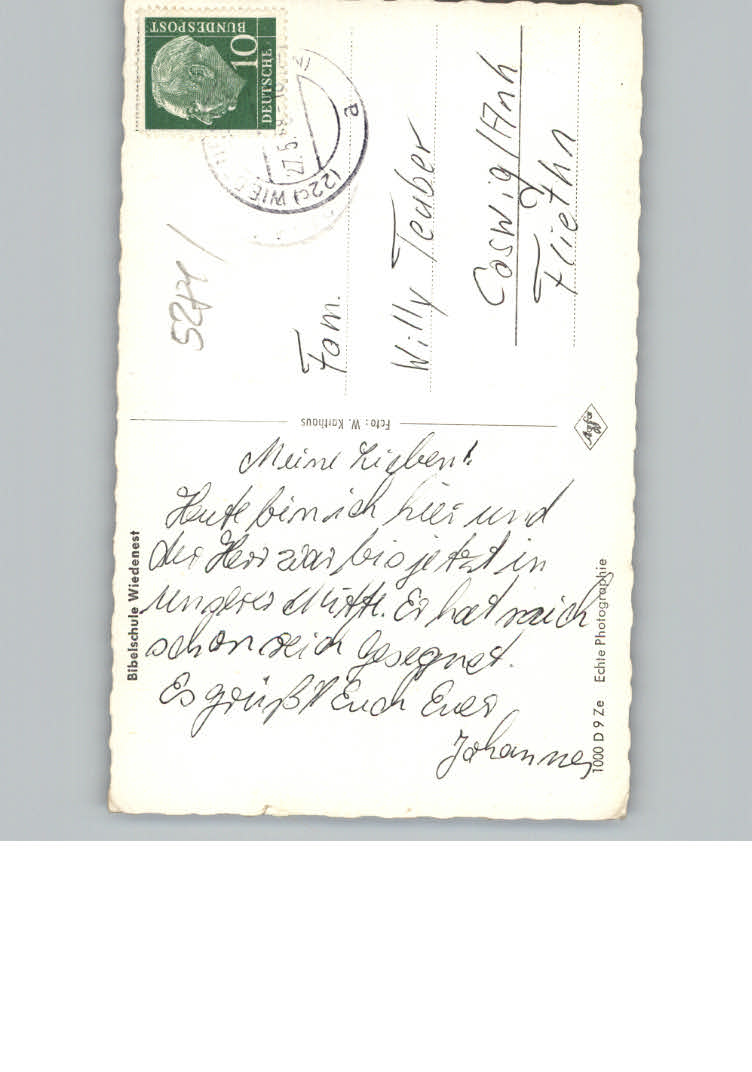 Bibelschule Wiedenest
Meine Lieben!
Heute bin ich hier und
der Herr war bis jetzt in
unserer Mitte. Er hat mich
schon reich gesegnet.
Es grüßt Euch Euer
Johannes
Foto: W. Karthaus
Agfa
1000 D 9 Ze Echte Photographie
DEUTSCHE
BUNDESPOST
10
(22c) WIE
27.9.
a
Fam.
Willy Teuber
Coswig/Anh